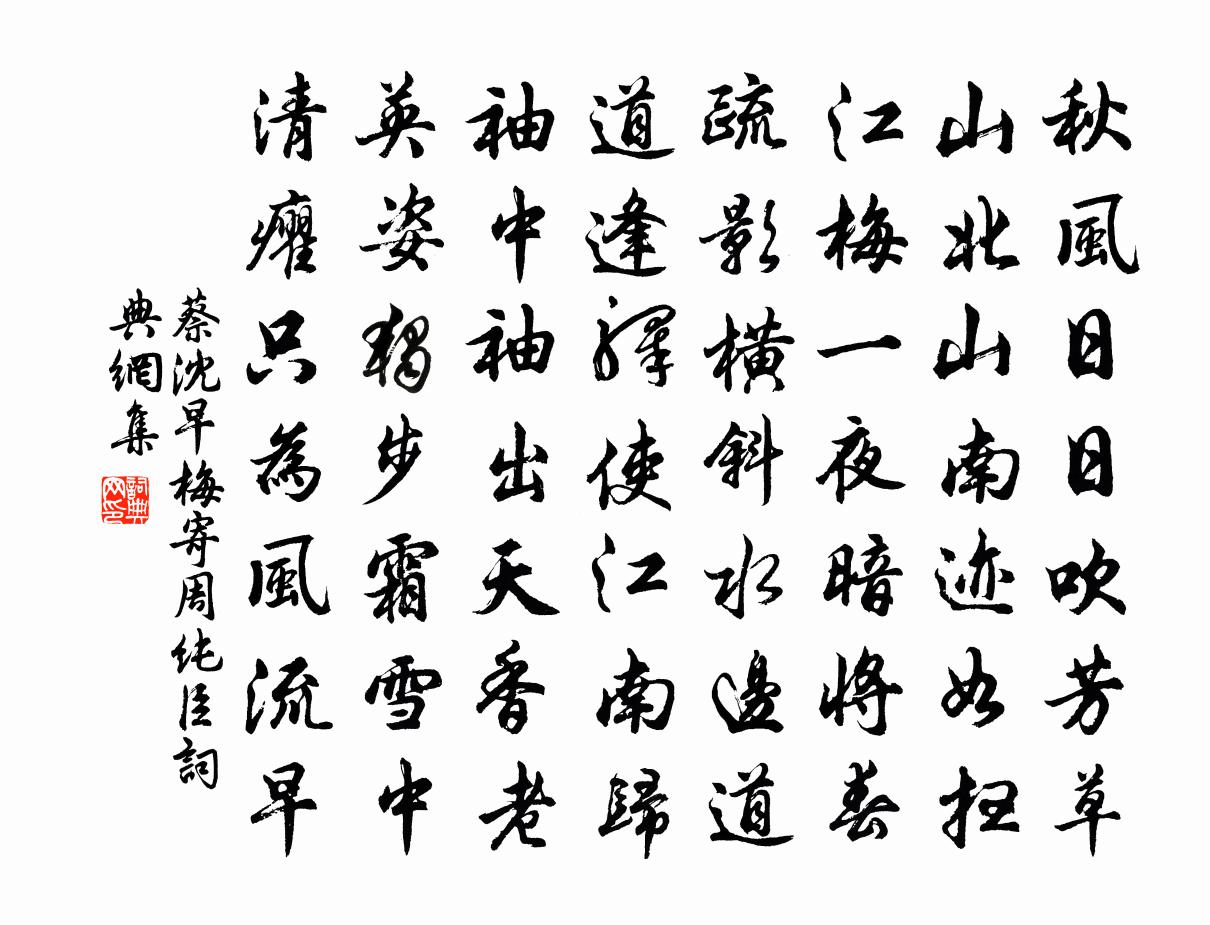 秋風日日吹芳草
山北山南迹如扫
江梅一夜暗將春
疏影橫斜水邊道
道逢驛使江南歸
袖中袖出天香老
英姿獨步霜雪中
清癯只為風流早
蔡沈早梅寄周純臣詞
典網集
詞典
网印